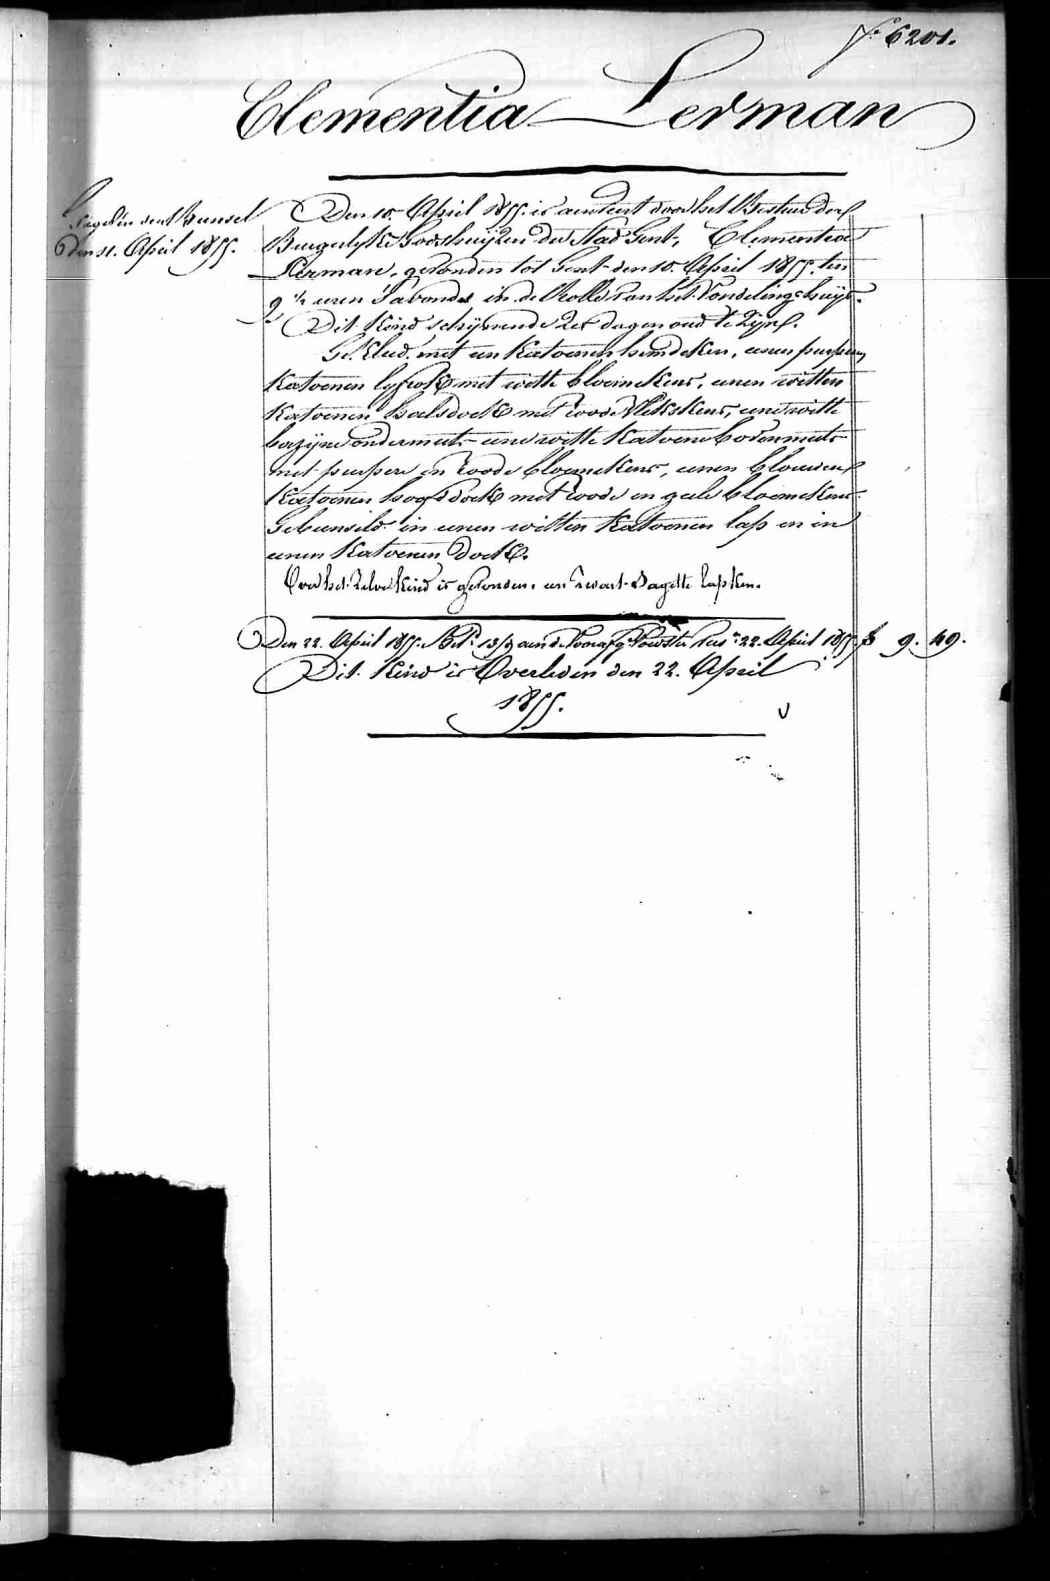 f° 6201.
Clementia Lerman
den 11. April 1855.
Den 10. April 1855. is aenveert door het Bestuer der
Burgerlyke Godshuijzen der Stad Gent, Clementia
Lerman, gevonden tot Gent den 10. April 1855. ten
9 ½ uren s'avonds in de Rolle van het Vondelingshuijs.
Dit Kind schijnende zes dagen oud te zijn.
Gekleed met een katoenen hemdeken, eenen purperen
katoenen lyfrok met witte bloemekens, eenen witten
katoenen halsdoek met roode vlekskens, eene witte
bazijne ondermuts eene witte katoene bovenmuts
met purpere en roode bloemekens, eenen blauwen
katoenen hoofddoek met roode en geele bloemekens.
Gebunseld in eenen witten katoenen lap en in
eenen katoenen doek.
Over het zelve kind is gevonden een zwart sagette lapken.
Den 22. April 1855. Bet. 13/3 aen de Voedster 22. April 1855. f 9. 49.
Dit Kind is Overleden den 22. April
1855.